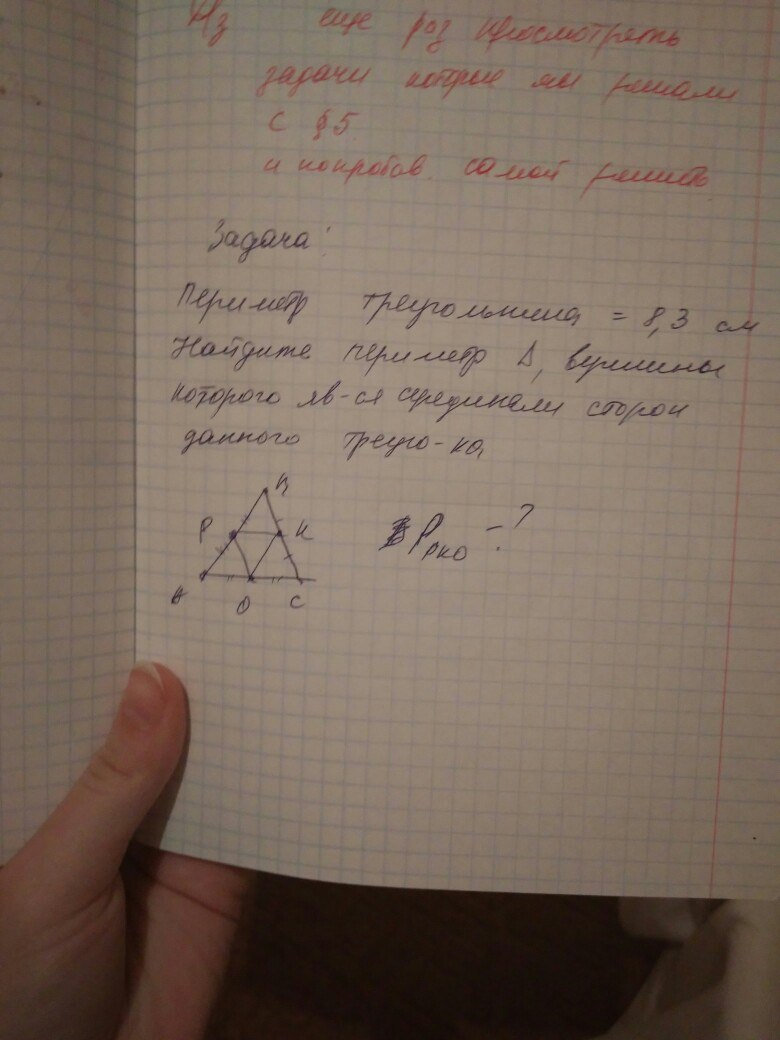 Дз еще раз просмотреть
задачи которые мы решали
с §5
и попробов. самой решить
Задача:
Периметр треугольника = 8,3 см
Найдите периметр Δ, вершины
которого яв-ся серединами сторон
данного треуго-ка
B
P K
A O C
P PKO = ?